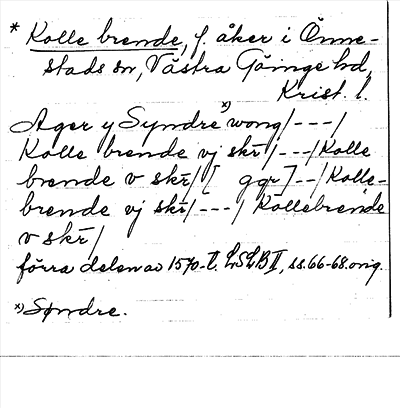 * Kolle brende, f. åker i Önne-
stads sn, Västra Göinge hd,
Krist. l.
Ager y Syndre x) wong/---/
Kolle brende vj skr̄/---/Kolle
brende v skr̄/[ ggr]--/Kolle-
brende vj skr̄/---/Kollebrende
v skr̄/
förra delen av 1570-t. LSLB II, ss. 66-68. orig.
x) Søndre.